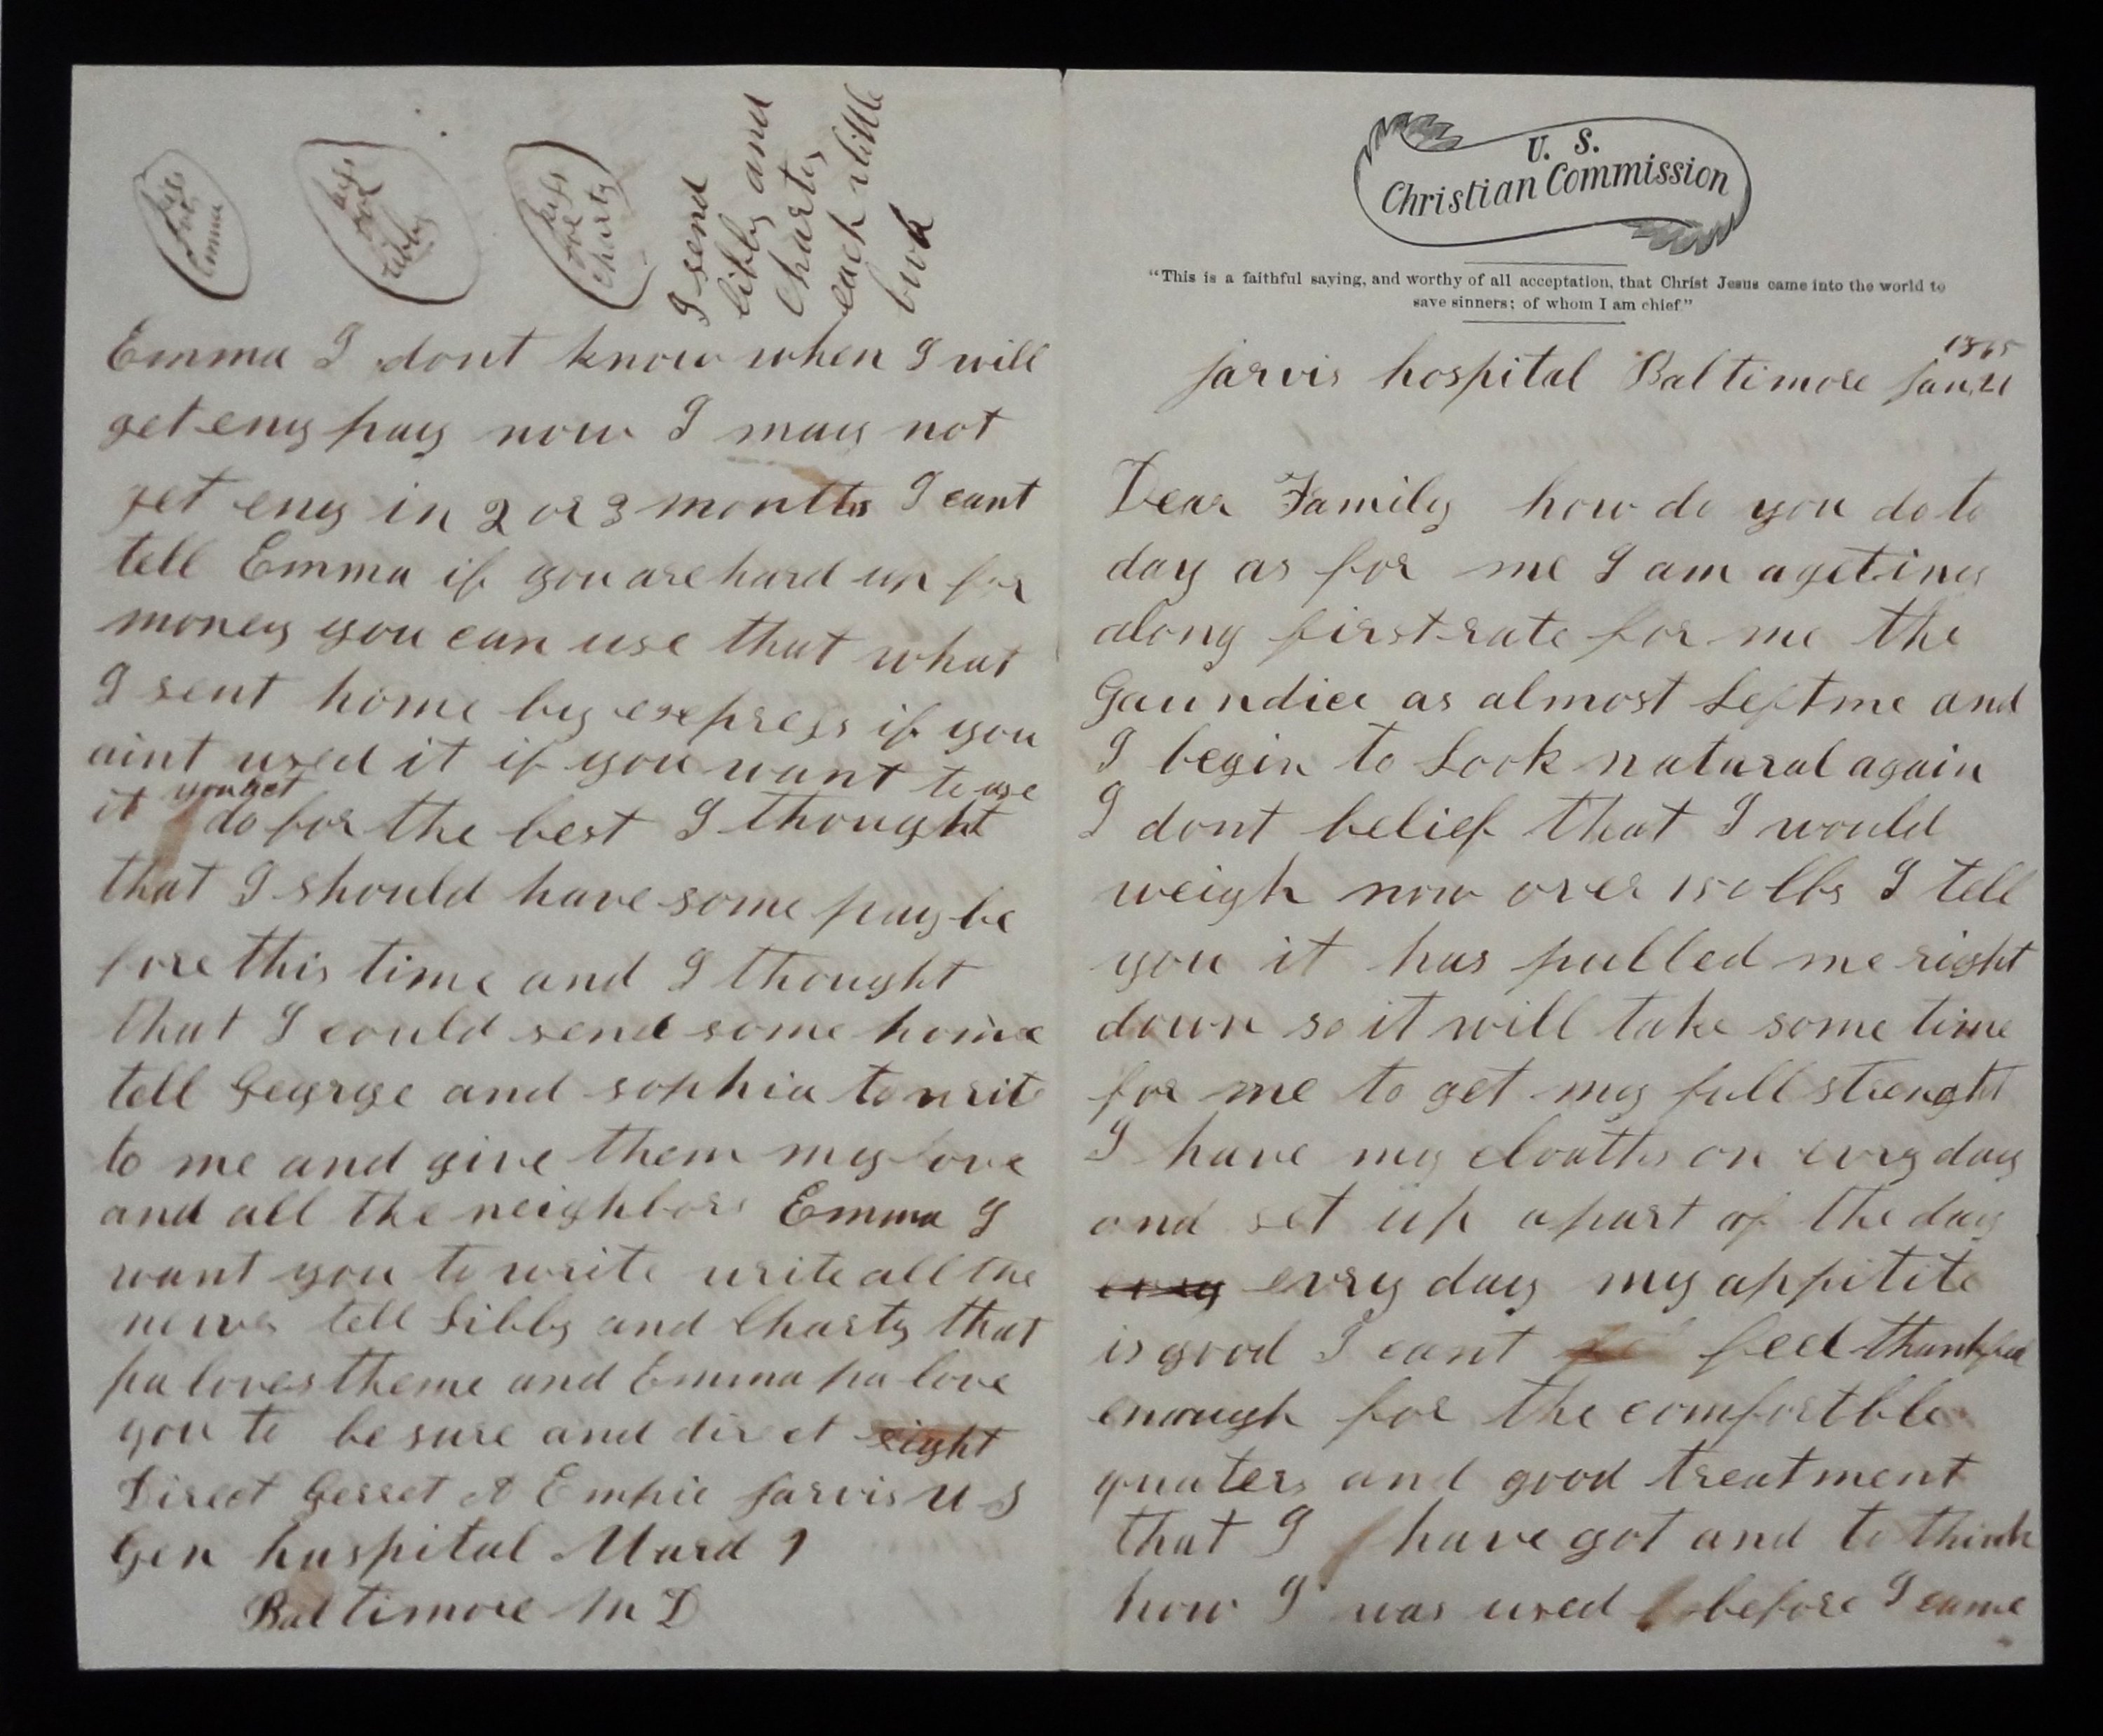 U. S.
Christian Commission
"This is a faithful saying, and worthy of all acceptation, that Christ Jesus came into the world to
save sinners; of whom I am chief"
1865
jarvis hospital Baltimore Jan, 21
Dear Family how do you do to
day as for me I am a geting
along first rate for me the
Gaundice as almost Left me and
I begin to Look natural again
I dont belief that I would
weigh now over 150 lbs I tell
you it has pulled me right
down so it will take some time
for me to get my full strenght
I have my cloaths on evry day
and set up apart of the day
evry evry day my appitite
is good I cant feel thankful
enough for the comfortble
quaters and good treatment
that I have got and to think
how I was used before I came
kiss for Emma
kiss for Libby
kiss for Charty
I send
libby and
Charty
each a little
book
Emma I dont know when I will
get eny pay now I may not
get eny in 2 or 3 months I cant
tell Emma if you are hard up for
money you can use that what
I sent home by express if you
aint used it if you want to use
it you get do for the best I thought
that I should have some pay be
fore this time and I thought
that I could send some home
tell George and sophia to writ
to me and give them my love
and all the neighbors Emma I
want you to write write all the
news tell Libby and Charty that
pa loves theme and Emma pa love
you to be sure and direct right
Direct Gerret A Empie Jarvis U S
Gen huspital Ward 9
Baltimore M D